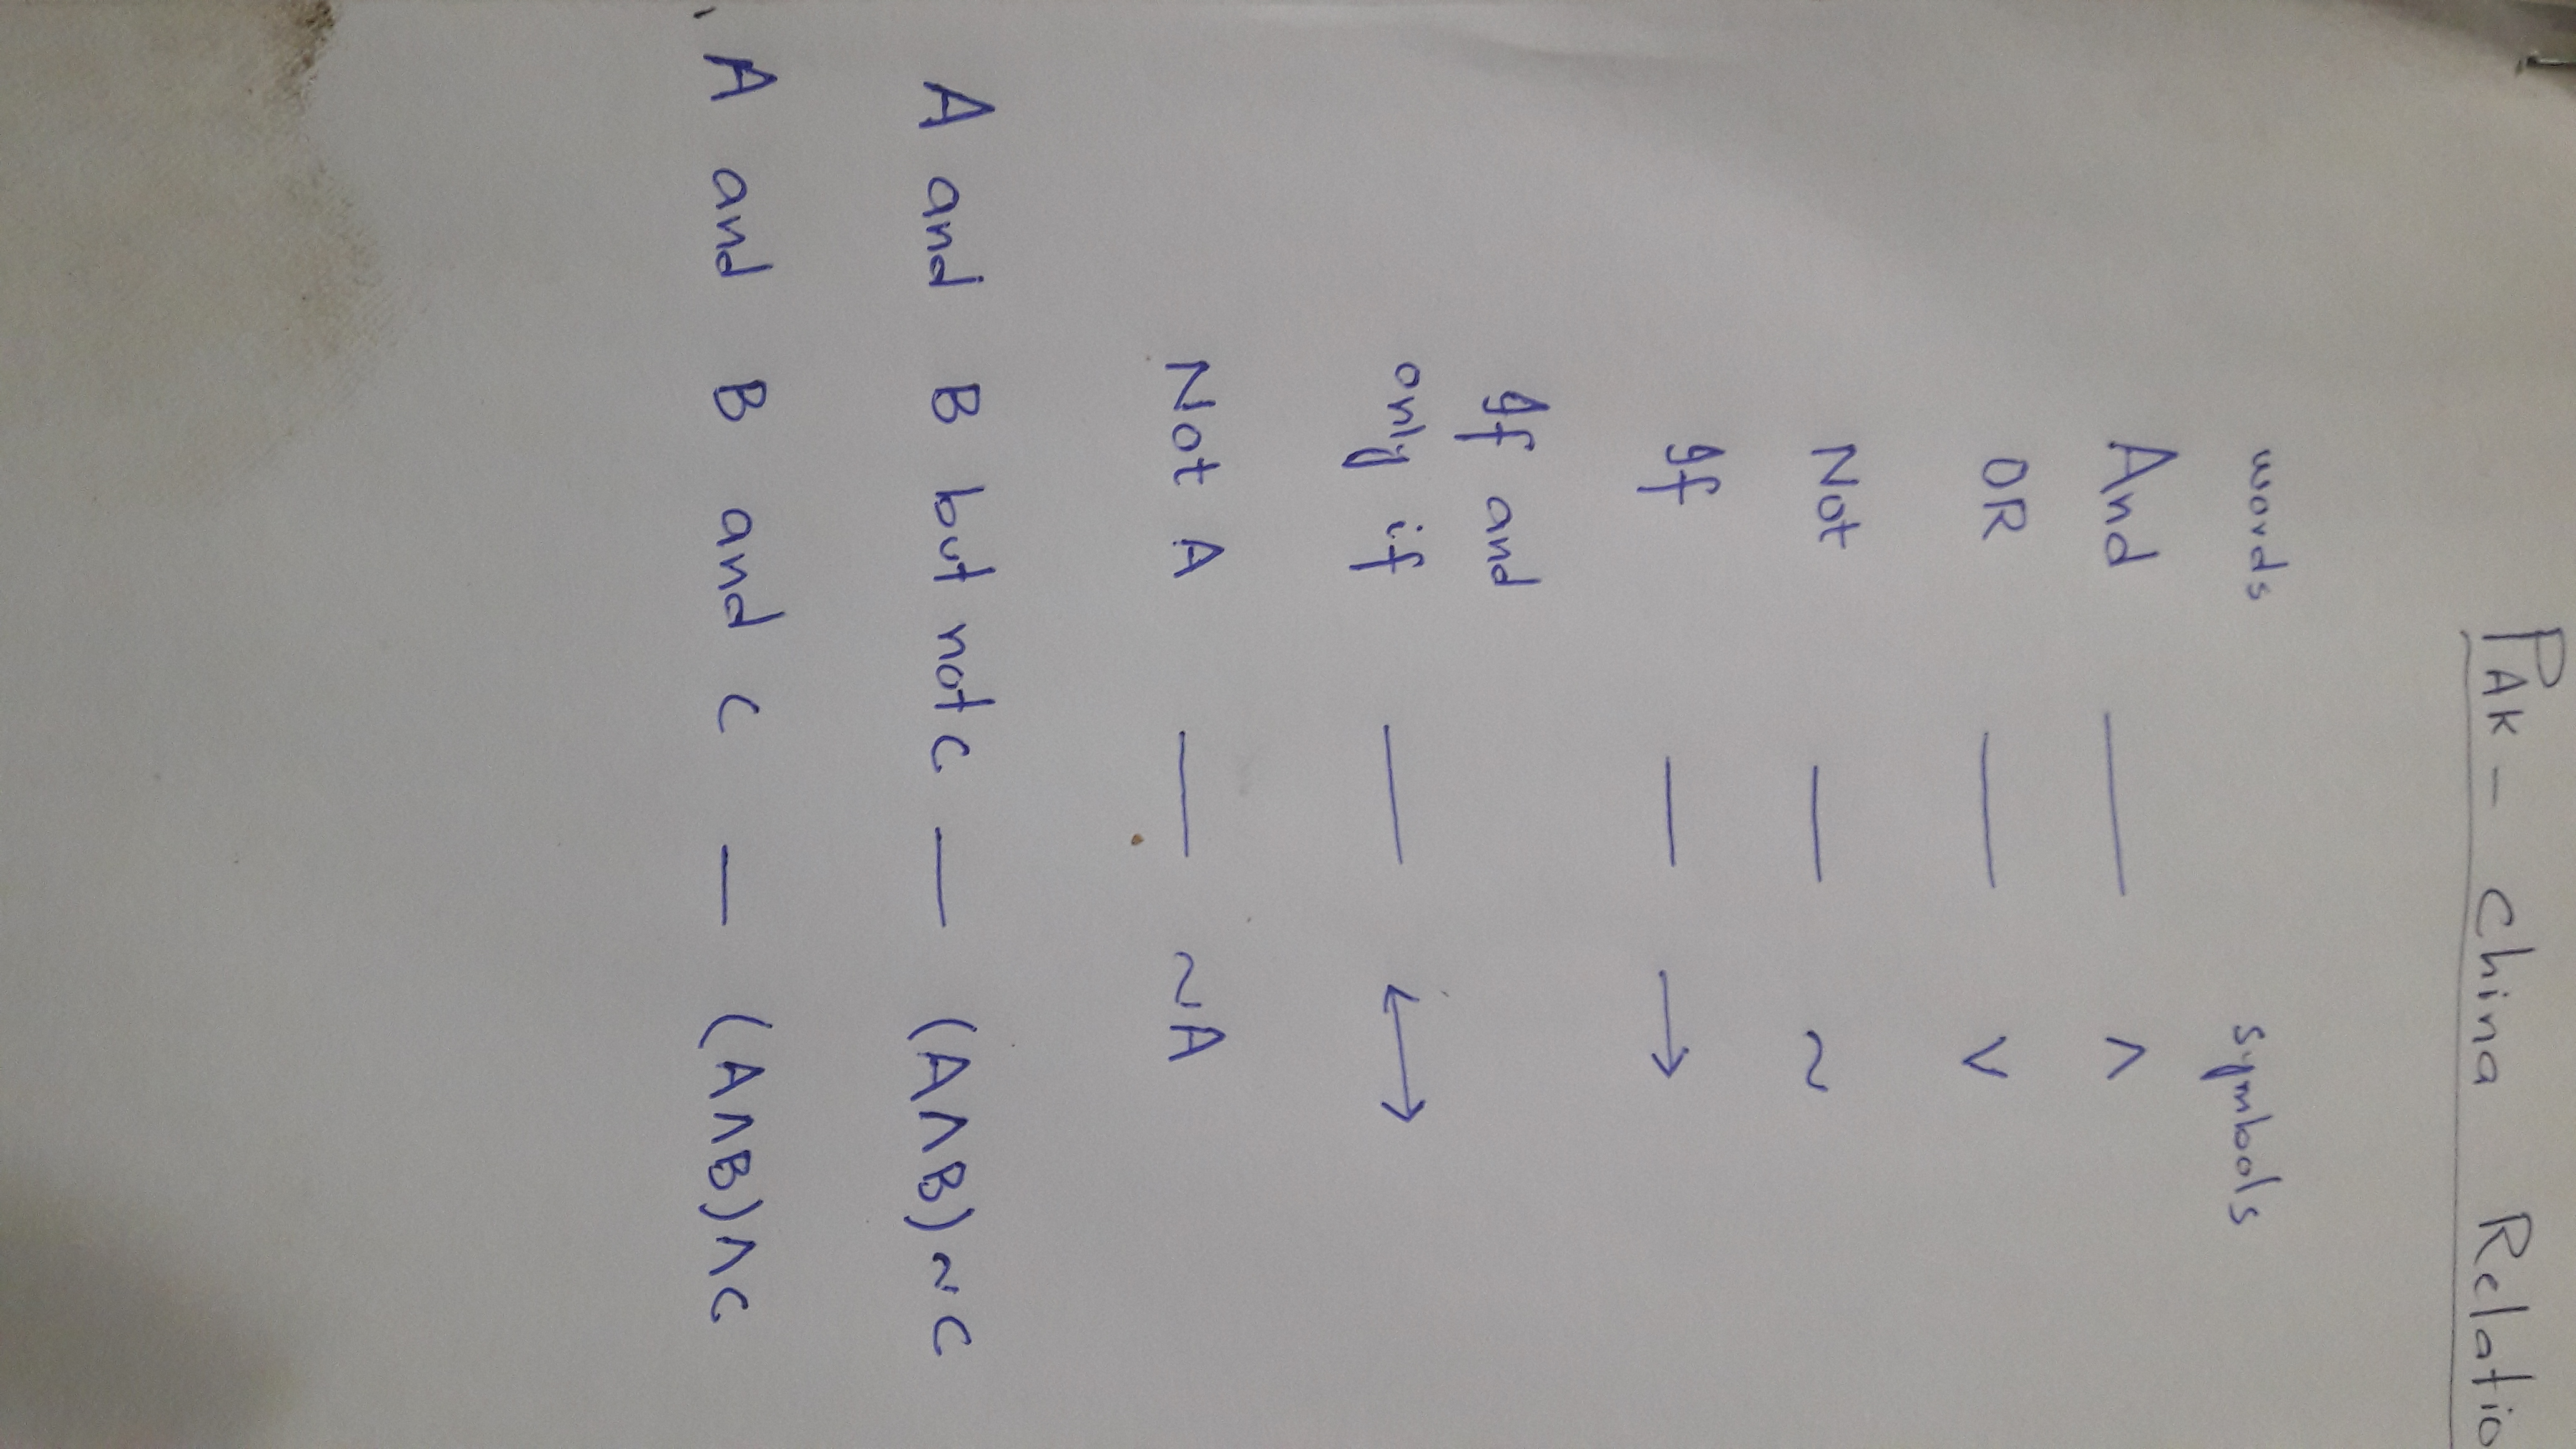 PAK - China Relatio
words symbols
And — ∧
OR — ∨
Not — ~
If — →
If and
only if — ↔
Not A — ~A
A and B but not C — (A∧B)~C
A and B and C — (A∧B)∧C